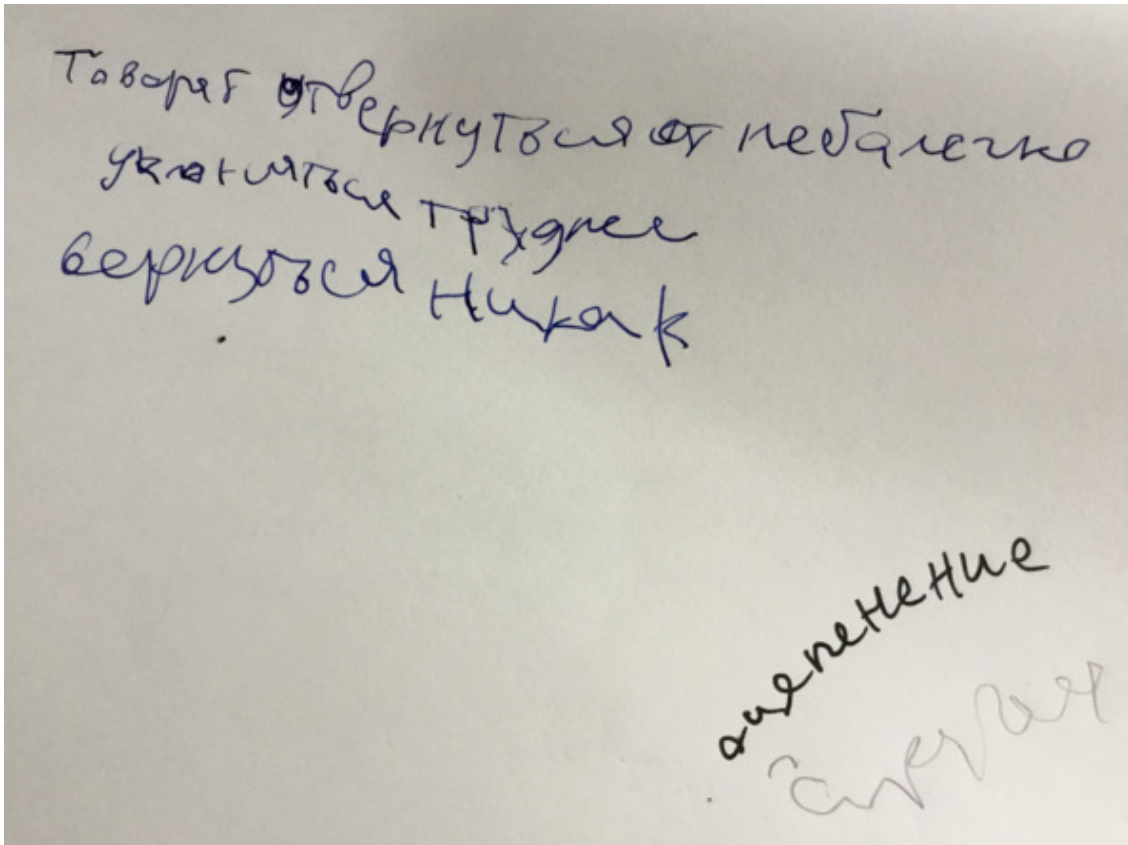 Говорят отвернуться от небалегко
уклоняться труднее
вернуться никак
оцепенение